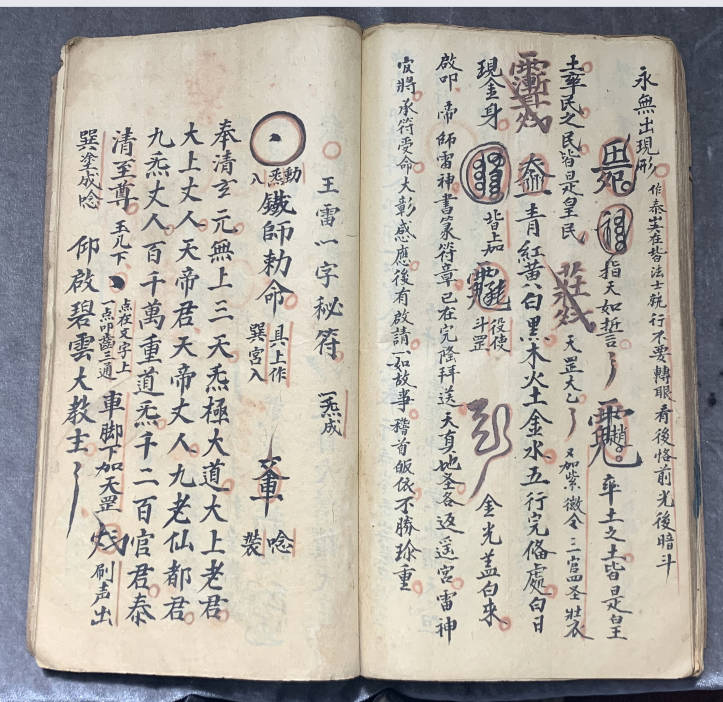 永無出現形 作泰岦在皆法士執行不要轉眼看後恪前光後暗斗
指天如誓言 率土之土皆是皇
土率民之民皆是皇民 天罡大乙 又加紫微令三官四圣壯衣
青紅黃白黑木火土金水五行完俻處白日
現金身 皆上如 役使斗罡 金光蓋白來
啟叩 帝師雷神書篆符章已在完隂拜送天真地圣各返遥宮雷神
官將承符受命大彰感應後有啟請一如故亊稽首皈依不勝珎重
王雷一字秘符 一炁成
勳炁入 鐵師勅命 具上作巽宮入 唸裝
奉清玄元無上三天炁極大道大上老君
大上丈人天帝君天帝丈人九老仙都君
九炁丈人百千萬重道炁千二百官君泰
清至尊 玉几下 点在文字上一点叩齒三通 車脚下加天罡 刷声出
巽塗成唸 仰啟碧雲大教主